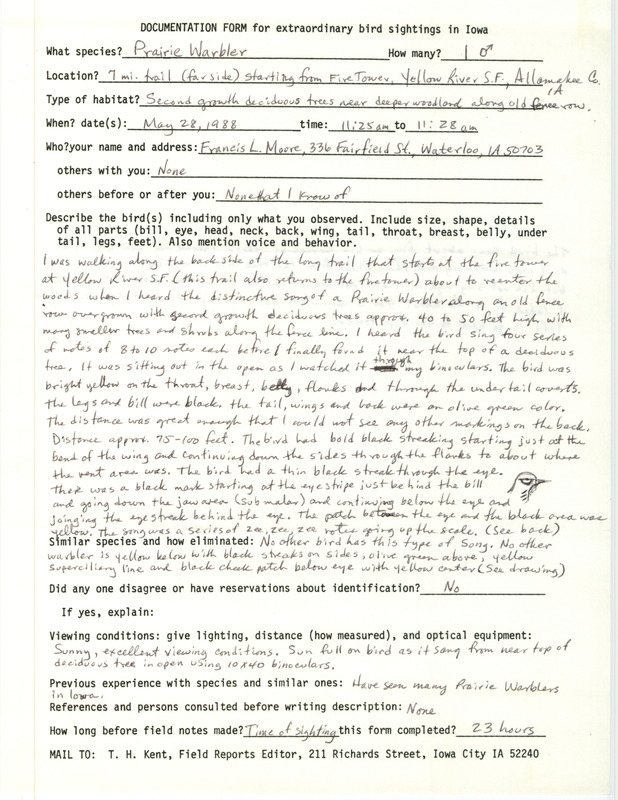 DOCUMENTATION FORM for extraordinary bird sightings in Iowa
What species? Prairie Warbler How many? 1 ♂
Location? 7 mi. trail (far side) starting from Fire Tower, Yellow River S.F., Allamakee Co.
IA
Type of habitat? Second growth deciduous trees near deeper woodland along old fence row.
When? date(s): May 28, 1988 time: 11:25 am to 11:28 am
Who? your name and address: Francis L. Moore, 336 Fairfield St., Waterloo, IA 50703
others with you: None
others before or after you: None that I know of
Describe the bird(s) including only what you observed. Include size, shape, details
of all parts (bill, eye, head, neck, back, wing, tail, throat, breast, belly, under
tail, legs, feet). Also mention voice and behavior.
I was walking along the back side of the long trail that starts at the fire tower
at Yellow River S.F. (this trail also returns to the fire tower) about to reenter the
woods when I heard the distinctive song of a Prairie Warbler along an old fence
row overgrown with second growth deciduous trees approx. 40 to 50 feet high with
many smaller trees and shrubs along the fence line. I heard the bird sing four series
of notes of 8 to 10 notes each before I finally found it near the top of a deciduous
tree. It was sitting out in the open as I watched it through my binoculars. The bird was
bright yellow on the throat, breast, belly, flanks and through the undertail coverts.
The legs and bill were black. The tail, wings and back were an olive green color.
The distance was great enough that I could not see any other markings on the back.
Distance approx. 75-100 feet. The bird had bold black streaking starting just at the
bend of the wing and continuing down the sides through the flanks to about where
the vent area was. The bird had a thin black streak through the eye.
There was a black mark starting at the eyestripe just behind the bill
and going down the jaw area (sub malar) and continuing below the eye and
joinging the eye streak behind the eye. The patch between the eye and the black area was
yellow. The song was a series of zee, zee, zee notes going up the scale. (See back)
Similar species and how eliminated: No other bird has this type of song. No other
warbler is yellow below with black streaks on sides, olive green above, yellow
superciliary line and black cheek patch below eye with yellow center (See drawing)
Did any one disagree or have reservations about identification? No
If yes, explain:
Viewing conditions: give lighting, distance (how measured), and optical equipment:
Sunny, excellent viewing conditions. Sun full on bird as it sang from near top of
deciduous tree in open using 10x40 binoculars.
Previous experience with species and similar ones: Have seen many Prairie Warblers
in Iowa.
References and persons consulted before writing description: None
How long before field notes made? Time of sighting this form completed? 23 hours
MAIL TO: T. H. Kent, Field Reports Editor, 211 Richards Street, Iowa City IA 52240